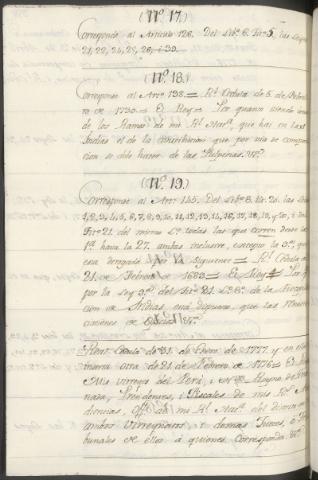 (N.º 17.)
Corresponde al Articulo 126. Del Lib.º 8. tit.º 5, las Leyes
21, 22, 24, 25, 26, i 30.
(N.º 18.)
Corresponde al Art.º 138 = R.l Cedula de 5 de Febre-
ro de 1730. = El Rey = Por quanto siendo uno
de los Ramos de mi R.l Haz.da que hai en las
Indias el de la que por via se compo-
cion se debe hacer de las Pulperias. &.ª
(N.º 19.)
Corresponde al Art.º 145. Del Lib.º 8. tit. 20. las Leyes
1, 2, 3, 4, 5, 6, 7, 8, 9, 10, 11, 12, 13, 14, 16, 17, 18, 19, y 20, i del
Tit.º 21. del mismo L.º todas las que corren desde la
1.ª hasta la 27. ambas inclusive, excepto la 3.ª que
esta derogada Siguense = R.l Cedula de
21. de Febrero de 1683 = El Rey = Por q.º
por la Ley 3.ª del tit.º 21. L.º 8.º de la Recopila-
cion de Indias está dispuesto, que las Renun-
ciaciones de oficios &.ª
Real Cedula de 31. de Enero de 1777. y en ella
inserta otra de 21. de Febrero de 1776 = El Rey
= Mis Virreyes del Perú, i Nueva España, de Gra-
nada, Presidentes, i Fiscales de mis R.s Au-
diencias, Off.s de mi R.l Haz.da del distrito de
ambos Virreynatos i demas Jueces, ó Tri-
bunales de ellos á quienes corresponda &.ª